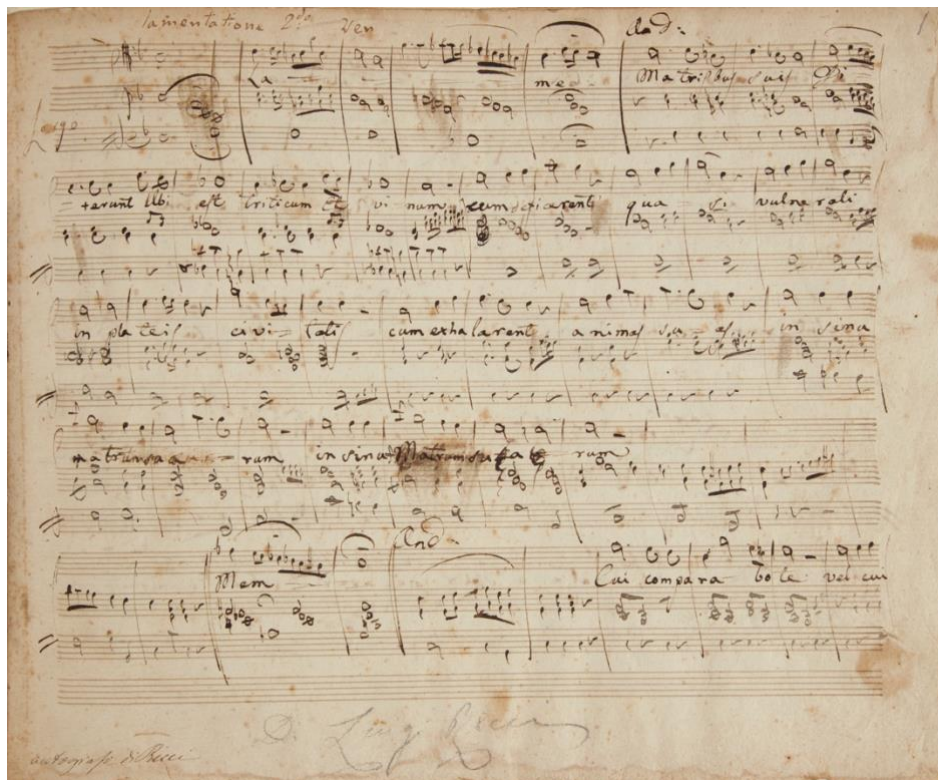 Lamentatione 2da Ven
And:
Largo
La med. Matribus suis Di
=xerunt Ubi est triticum et vinum cum deficerent qua = si vulnerati
in plateis civi = tatis cum exhalarent animas su = as in sinu
matrum sua = rum in sinu Matrum sua rum
And:
Mem Cui compara bo te vel cui
D. Luigi Ricci
autografo di Ricci